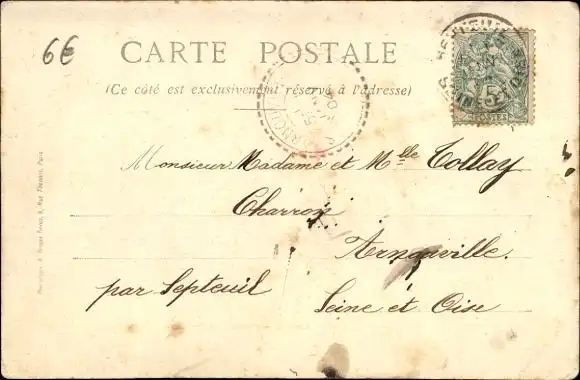 6€
CARTE POSTALE
(Ce côté est exclusivement réservé à l'adresse)
5
Monsieur Madame et Mlle Tollay
Charron
Arnouville.
par Septeuil
Seine et Oise